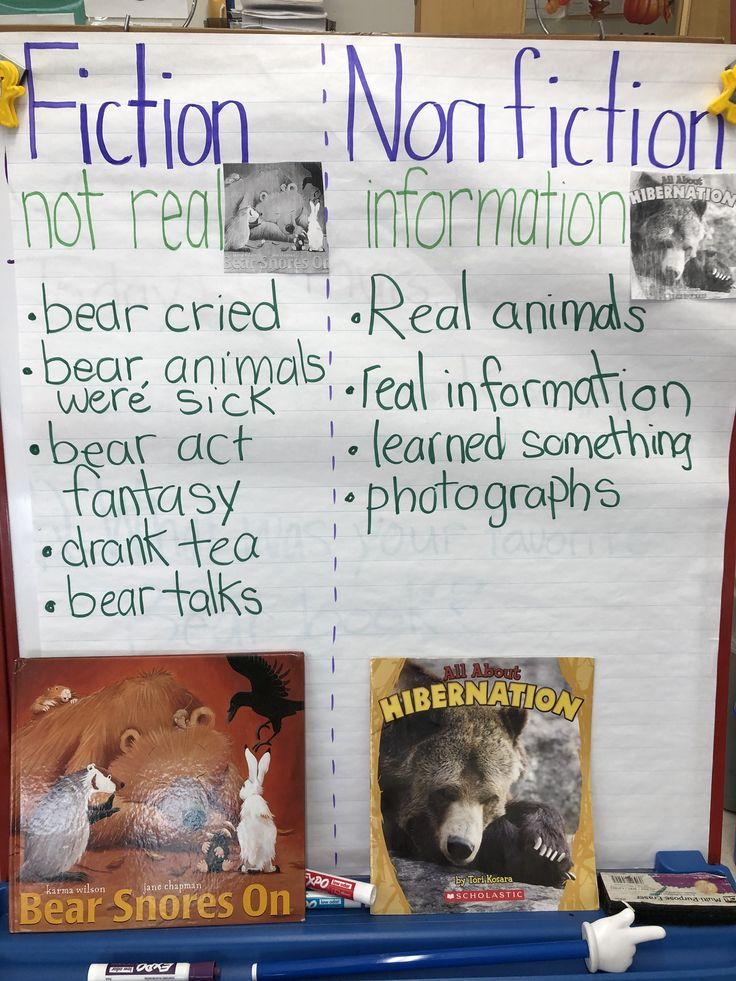 Fiction
not real
Bear Snores On
• bear cried
• bear, animals
were sick
• bear act
fantasy
• drank tea
• bear talks
Nonfiction
information
All About
HIBERNATION
• Real animals
• real information
• learned something
• photographs
karma wilson jane chapman
Bear Snores On
All About
HIBERNATION
by Tori Kosara
SCHOLASTIC
EXPO
EXPO
Multi-Purpose Eraser